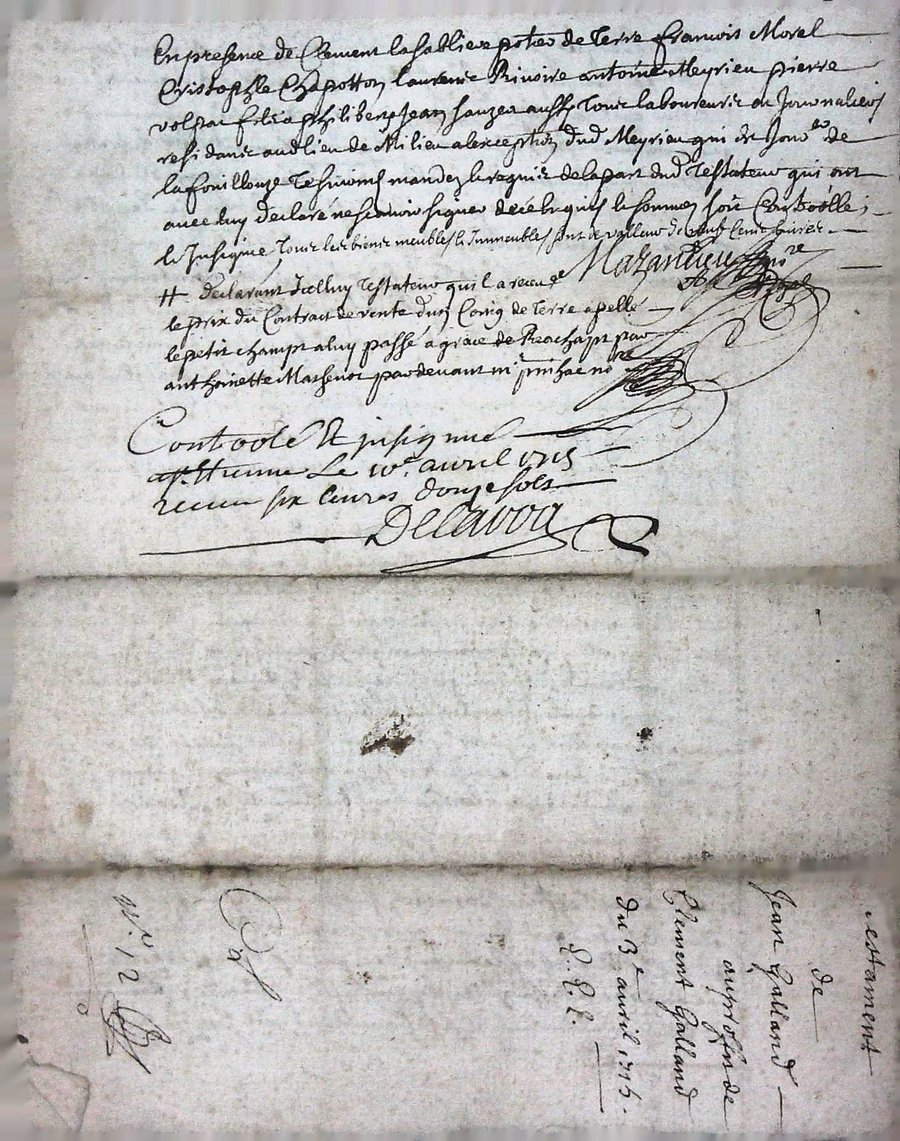 En presence de Clement la Sabliere potier de Terre francois Morel
Cristophle Chapotton laurence Rivoire antoine Meyrieu pierre
philiberg Jean tous laboureurs ou Journaliers
residants audlieu de Milieu alexception dud Meyrieu qui est
la fouillouze Tesmoins mandez & requis de la part dud Testateur qui ont
avec luy declaré ne scavoir signer de ce enquis & sommes soit Controlle
& Insigné Tous les biens meubles & Immeubles sont de valleur de livres
Mazanlieu nore
# declarant Icelluy Testateur quil a receu
le prix du Contrait de vente dun de Terre apellé
le petit champt a luy passé a grace de Reachapt par
anthoinette par devant me nore
Controlé & insignué
a st. le 10e. avril 1715
receu six livres douze sols
Delavoa
Testament
de
Jean Galland
au profin de
Clement Galland
du 3e avril 1715.
No. 12